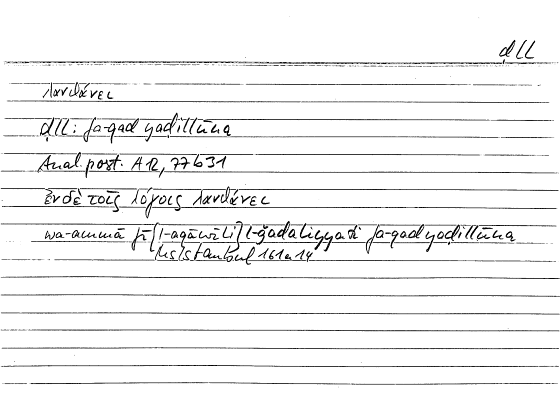 ḍLL
λανθάνει
ḍLL: fa-qad yaḍillūna
Anal. post. A 12, 77 b 31
ἐν δὲ τοῖς λόγοις λανθάνει
wa-ammā fī [l-aqāwīli] l-ǧadaliyyati fa-qad yaḍillūna
Ms Istanbul 161 a 14